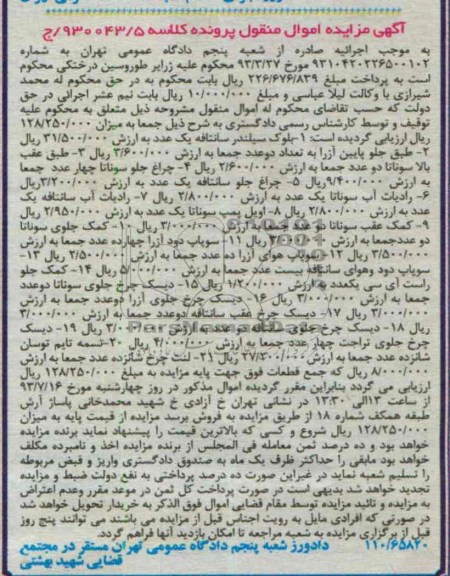 آگهی مزایده اموال منقول پرونده کلاسه ۹۳۰۰۴۳/۵/ج
به موجب اجرائیه صادره از شعبه پنجم دادگاه عمومی تهران به شماره
۹۳۱۰۴۲۰۲۲۶۵۰۰۱۰۲ مورخ ۹۳/۳/۲۷ محکوم علیه زرابر طوروسین درختکی محکوم
است به پرداخت مبلغ ۲۲۶/۶۷۶/۸۳۹ ریال بابت محکوم به در حق محکوم له محمد
شیرازی با وکالت لیلا عباسی و مبلغ ۱۰/۰۰۰/۰۰۰ ریال بابت نیم عشر اجرائی در حق
دولت که حسب تقاضای محکوم له اموال منقول مشروحه ذیل متعلق به محکوم علیه
توقیف و توسط کارشناس رسمی دادگستری به شرح ذیل جمعا به میزان ۱۲۸/۲۵۰/۰۰۰
ریال ارزیابی گردیده است: ۱-بلوک سیلندر سانتافه یک عدد به ارزش ۳۱/۵۰۰/۰۰۰ ریال
۲- طبق جلو پایین آزرا به تعداد دوعدد جمعا به ارزش ۳/۶۰۰/۰۰۰ ریال ۳- طبق عقب
بالا سوناتا دو عدد جمعا به ارزش ۲/۶۰۰/۰۰۰ ریال ۴- چراغ جلو سوناتا چهار عدد جمعا
به ارزش ۹/۴۰۰/۰۰۰ریال ۵- چراغ جلو سانتافه یک عدد به ارزش ۳/۲۰۰/۰۰۰ریال
۶- رادیات آب سوناتا یک عدد به ارزش ۲/۸۰۰/۰۰۰ ریال ۷- رادیات آب سانتافه یک
عدد به ارزش ۲/۸۰۰/۰۰۰ ریال ۸-اویل پمپ سوناتا یک عدد به ارزش ۲/۹۵۰/۰۰۰ ریال
۹- کمک عقب سوناتا دو عدد جمعا به ارزش ۳/۰۰۰/۰۰۰ ریال ۱۰- کمک جلوی سوناتا
دو عددجمعا به ارزش ریال ۱۱- سوپاپ دود آزرا چهارده عدد جمعا به ارزش
۳/۵۰۰/۰۰۰ ریال ۱۲-سوپاپ هوای آزرا ده عدد جمعا به ارزش ۲/۵۰۰/۰۰۰ ریال ۱۳-
سوپاپ دود وهوای سانتافه بیست عدد جمعا به ارزش ۵/۰۰۰/۰۰۰ ریال ۱۴- کمک جلو
راست آی سی یکعدد به ارزش ۱/۲۰۰/۰۰۰ ریال ۱۵- دیسک چرخ جلوی سوناتا دوعدد
جمعا به ارزش ۳/۰۰۰/۰۰۰ ریال ۱۶- دیسک چرخ جلوی آزرا دوعدد جمعا به ارزش
۳/۰۰۰/۰۰۰ ریال ۱۷- دیسک چرخ عقب سانتافه دوعدد جمعا به ارزش ۳/۰۰۰/۰۰۰
ریال ۱۸- دیسک چرخ جلوی سانتافه دو عدد به ارزش ۳/۰۰۰/۰۰۰ ریال ۱۹- دیسک
چرخ جلوی تراجت چهار عدد جمعا به ارزش ۴/۰۰۰/۰۰۰ ریال ۲۰-تسمه تایم توسان
شانزده عدد جمعا به ارزش ۲۷/۲۰۰/۰۰۰ ریال ۲۱- لنت چرخ شانزده عدد جمعا به ارزش
۸/۰۰۰/۰۰۰ ریال که جمع قطعات فوق جهت پایه مزایده به مبلغ ۱۲۸/۲۵۰/۰۰۰ ریال
ارزیابی می گردد بنابراین مقرر گردیده اموال مذکور در روز چهارشنبه مورخ ۹۳/۷/۱۶
از ساعت ۱۳الی ۱۳:۳۰ در نشانی تهران خ آزادی خ شهید محمدخانی پاساژ آرش
طبقه همکف شماره ۱۸ از طریق مزایده به فروش برسد مزایده از قیمت پایه به میزان
۱۲۸/۲۵۰/۰۰۰ ریال شروع و کسی که بالاترین قیمت را پیشنهاد نماید برنده مزایده
خواهد بود و ده درصد ثمن معامله فی المجلس از برنده مزایده اخذ و نامبرده مکلف
خواهد بود مابقی را حداکثر ظرف یک ماه به صندوق دادگستری واریز و قبض مربوطه
را تسلیم شعبه نماید در غیراین صورت ده درصد پرداختی به نفع دولت ضبط و مزایده
تجدید خواهد شد بدیهی است در صورت پرداخت کل ثمن در موعد مقرر وعدم اعتراض
به مزایده و تائید مزایده توسط مقام قضایی اموال فوق الذکر به خریدار تحویل خواهد شد
در صورتی که افرادی مایل به رویت اجناس قبل از مزایده می باشند می توانند پنج روز
قبل از برگزاری مزایده به شعبه مراجعه تا امکان بازدید آنها فراهم گردد.
۱۱۰/۶۵۸۲۰ دادورز شعبه پنجم دادگاه عمومی تهران مستقر در مجتمع
قضایی شهید بهشتی